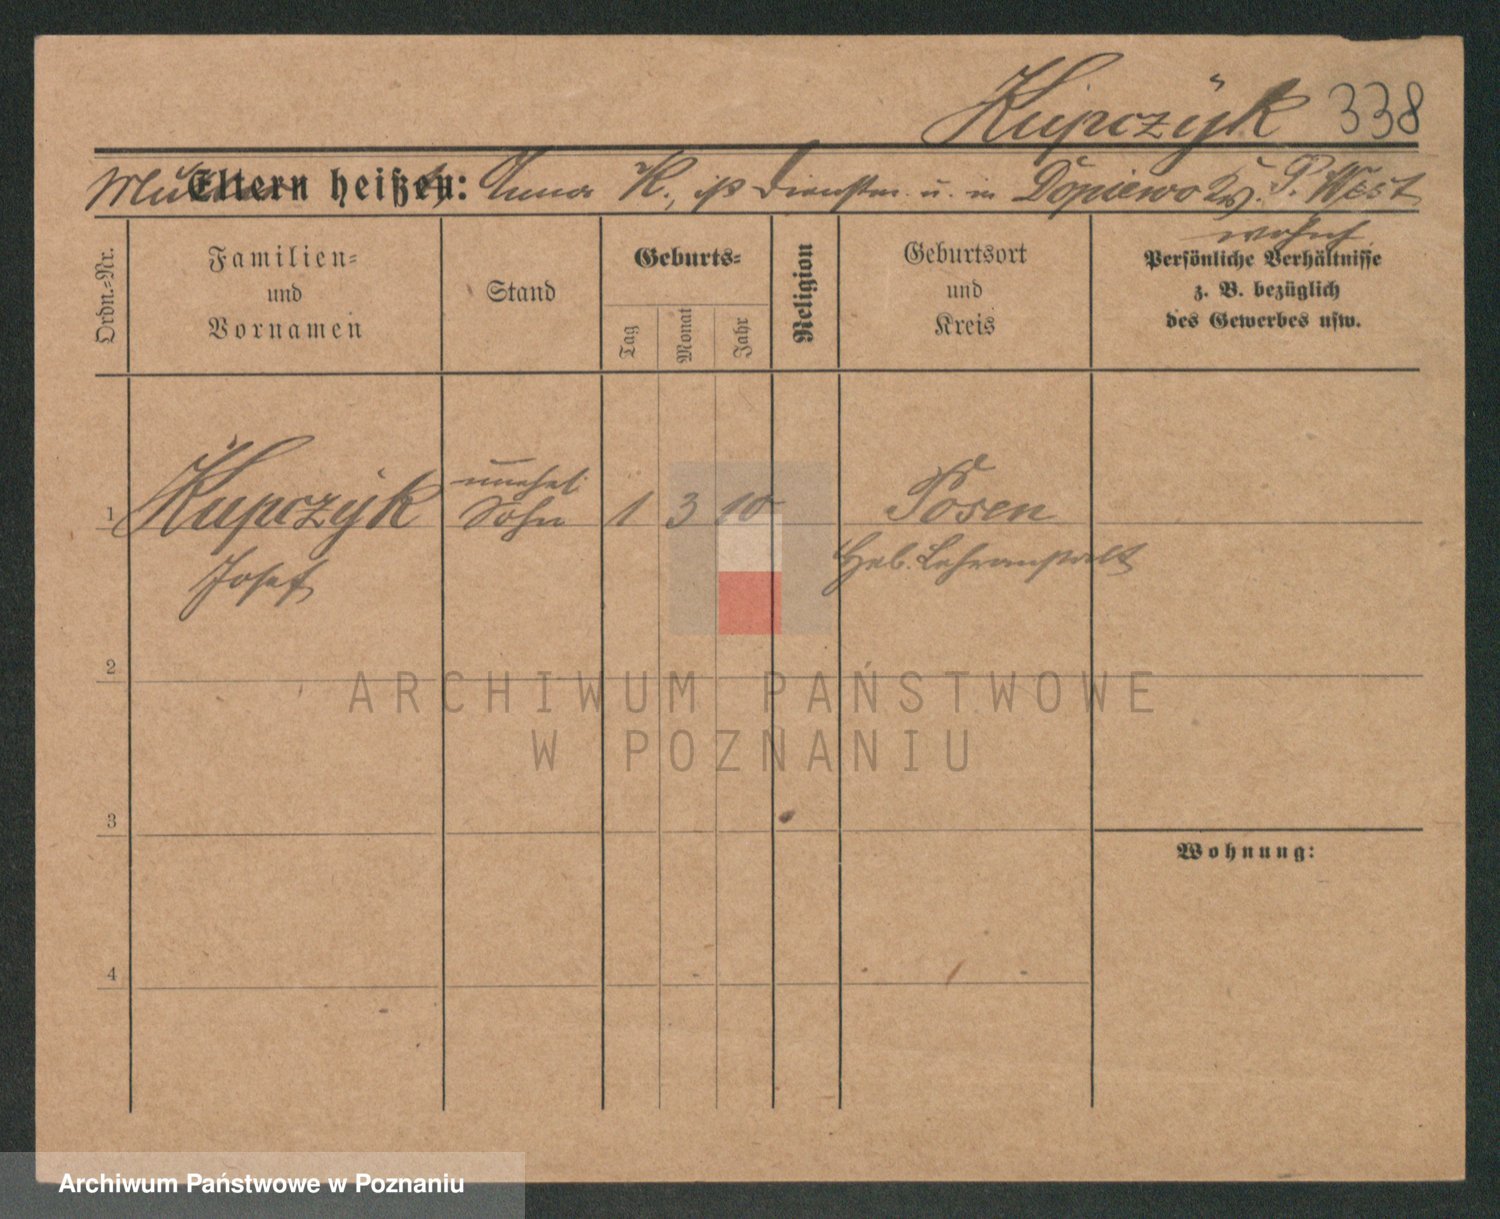 Kupczyk 338
Mutter Eltern heißen: Anna K., ist Dienstm. u. in Dopiewo Krs. P. West
wohnh.
Ordn.-Nr.
Familien-
und
Vornamen
Stand
Geburts-
Tag
Monat
Jahr
Religion
Geburtsort
und
Kreis
Persönliche Verhältnisse
z. B. bezüglich
des Gewerbes usw.
unehel.
1 Kupczyk Sohn 1 3 10 Posen
Josef Heb. Lehranstalt
2
ARCHIWUM PAŃSTWOWE
W POZNANIU
3
Wohnung:
4
Archiwum Państwowe w Poznaniu